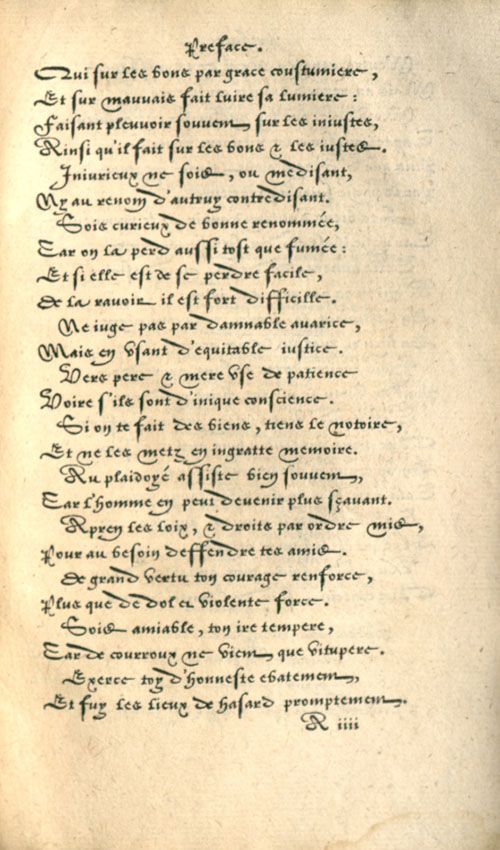 Preface.
Qui sur les bons par grace coustumiere,
Et sur mauvais fait luire sa lumiere:
Faisant pleuvoir souvent sur les iniustes,
Ainsi qu'il fait sur les bons & les iustes.
Iniurieux ne sois, ou medisant,
Ny au renom d'autruy contredisant.
Sois curieux de bonne renommée,
Car on la perd aussi tost que fumée:
Et si elle est de se perdre facile,
De la ravoir il est fort difficille.
Ne iuge pas par damnable avarice,
Mais en usant d'equitable iustice.
Vers pere & mere use de patience
Voire s'ils sont d'inique conscience.
Si on te fait des biens, tiens le notoire,
Et ne les metz en ingratte memoire.
Au plaidoyé assiste bien souvent,
Car l'homme en peut devenir plus sçavant.
Apren les loix, & droits par ordre mis,
Pour au besoin deffendre tes amis.
De grand vertu ton courage renforce,
Plus que de dol et violente force.
Sois amiable, ton ire tempere,
Car de courroux ne vient que vitupere.
Exerce toy d'honneste ebatement,
Et fuy les lieux de hasard promptement.
A iiii